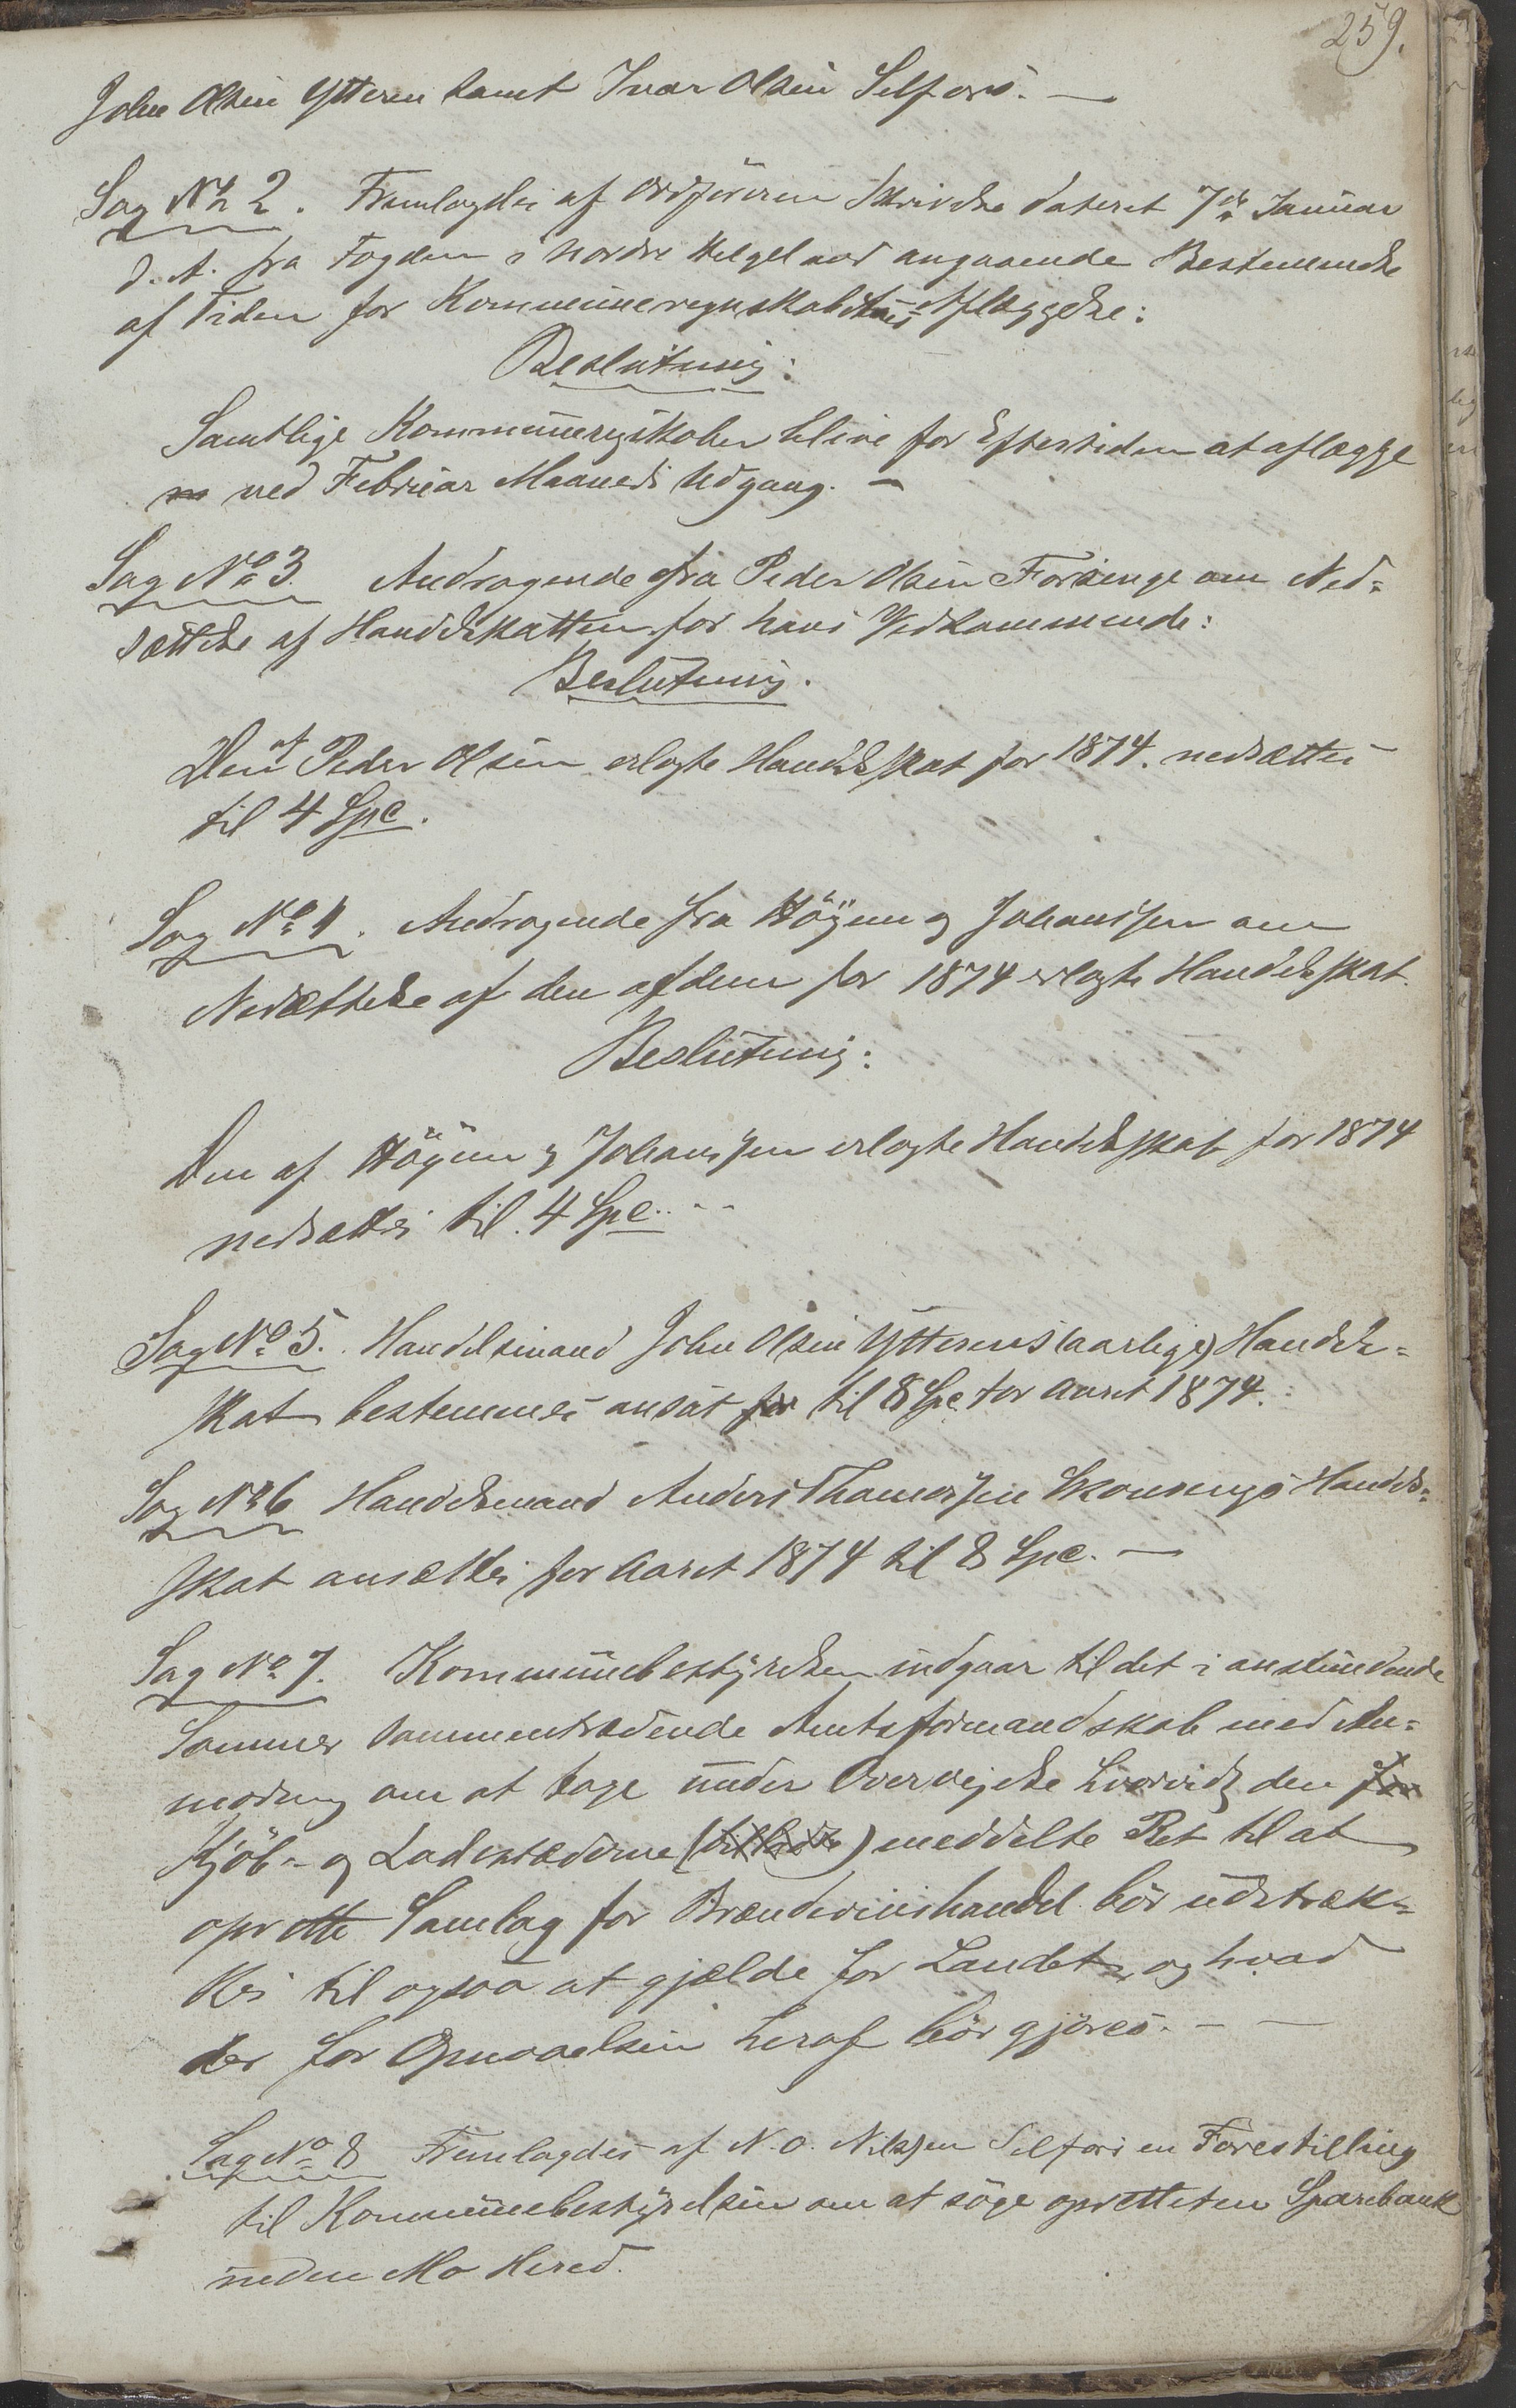 259.
John Olsen Ytteren samt Ivar Olsen Selfors. —
Sag No 2. Fremlagdes af Ordføreren Skrivelse dateret 7de Januar
d. A. fra Fogden i Nordre Helgeland angaaende Bestemmelse
af Tiden for Kommuneregnskabernes Aflæggelse:
Beslutning:
Samtlige Kommuneregnskaber blive for Eftertiden at aflægge
ved Februar Maaneds Udgang. —
Sag No 3. Andragende fra Peder Olsen Forsenge om Ned-
sættelse af Handelsskatten for hans Vedkommende:
Beslutning.
Den af Peder Olsen erlagte Handelsskat for 1874. nedsættes
til 4 Spe.
Sag No 4. Andragende fra Höyem og Johanssen om
Nedsættelse af den af dem for 1874 erlagte Handelsskat.
Beslutning:
Den af Höyem og Johanssen erlagte Handelsskat for 1874
nedsættes til 4 Spe. --
Sag No 5. Handelsmand John Olsen Ytterens (aarlige) Handels-
skat bestemmes ansat for til 8 Spe for Aaret 1874.
Sag No 6 Handelsmand Anders Thomassen Skonsengs Handels-
skat ansættes for Aaret 1874 til 8 Spe. —
Sag No 7. Kommunebestyrelsen indgaar til det i anstundende
Sommer sammentrædende Amtsformandskab med An-
modning om at tage under Overveielse hvorvidt den for
Kjöb- og Ladestæderne (tilladte) meddelte Ret til at
oprette Samlag for Brændevinshandel bör udstræk-
kes til ogsaa at gjælde for Landet, og hvad
der for Opnaaelsen heraf bör gjöres. — —
Sag No 8 Fremlagdes af N. O. Nilssen Selfors en Forestilling
til Kommunebestyrelsen om at söge oprettet en Sparebank
inden Mo Herred.